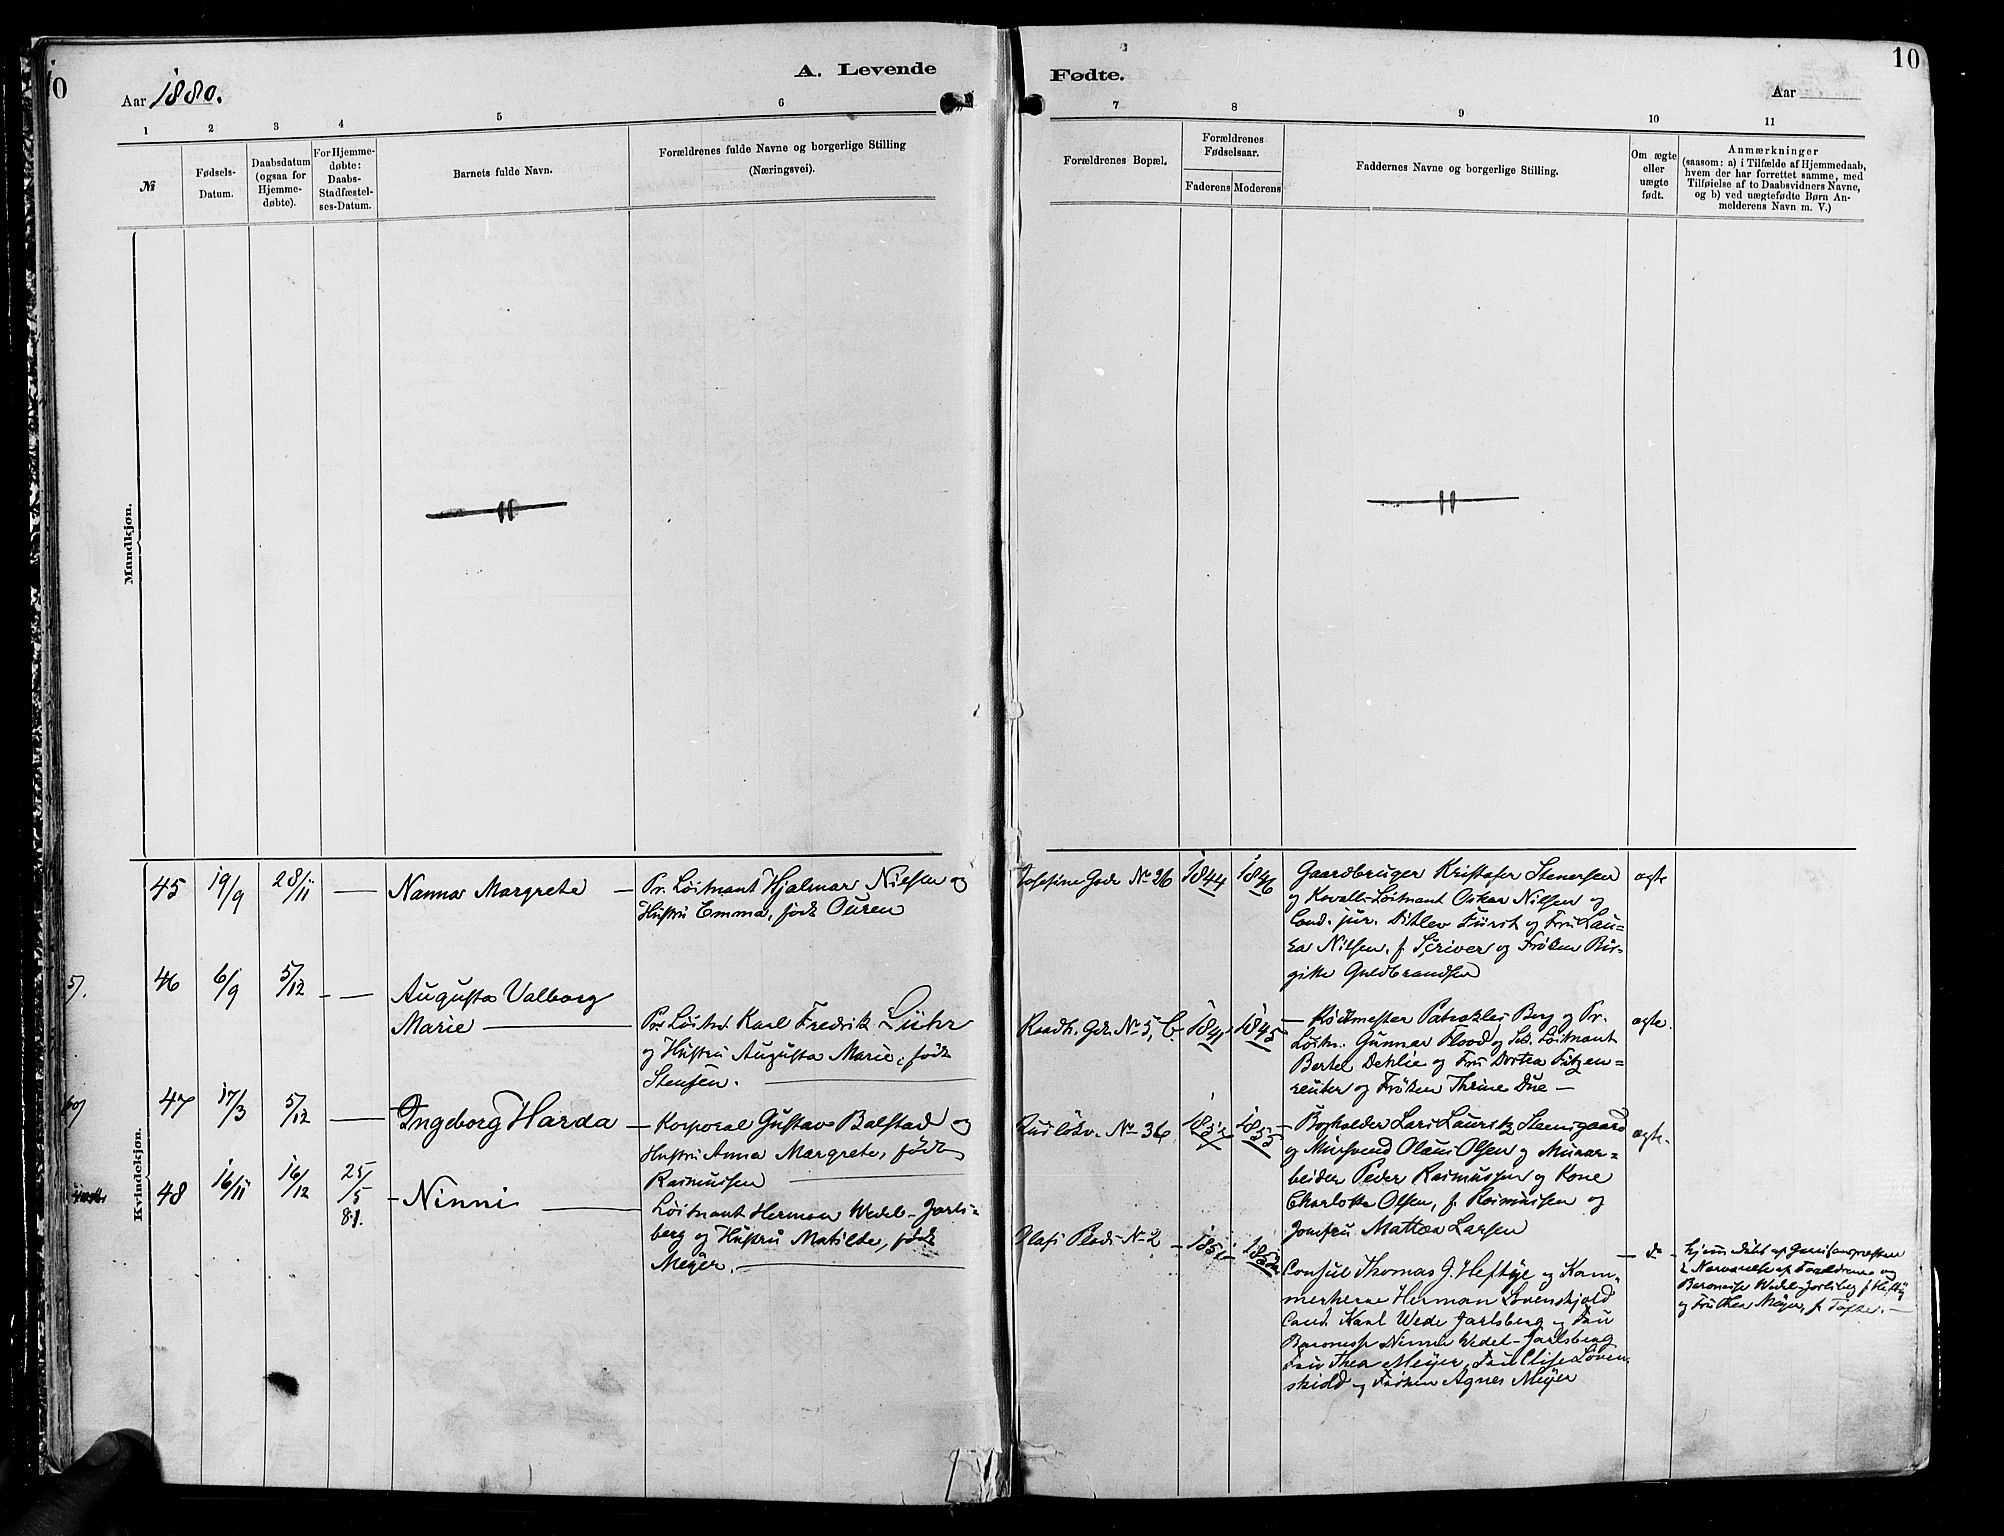 10
Aar 1880.
A. Levende
Fødte.
Aar
10
1
2
3
4
5
6
7
8
9
10
11
№
Fødsels-
Datum.
Daabsdatum
(ogsaa for
Hjemme-
døbte).
For Hjemme-
døbte:
Daabs-
Stadfæstel-
ses-Datum.
Barnets fulde Navn.
Forældrenes fulde Navne og borgerlige Stilling
(Næringsvei).
Forældrenes Bopæl.
Forældrenes
Fødselsaar.
Faderens
Moderens
Faddernes Navne og borgerlige Stilling.
Om ægte
eller
uægte
født.
Anmærkninger
(saasom: a) i Tilfælde af Hjemmedaab,
hvem der har forrettet samme, med
Tilføielse af to Daabsvidners Navne,
og b) ved uægtefødte Børn An-
melderens Navn m. V.)
Mandkjøn.
Kvindekjøn.
45 19/9 28/11 — Nanna Margrete — Pr. Løitnant Hjalmar Nielsen og
Hustru Emma, født Ouren
Josefine Gade No 26 1844 1846
Gaardbruger Kristofer Stenersen
og Kavalli Løitnant Oskar Nielsen og
Cand. jur. Ditlev Fürst og Fru Lau=
ra Nielsen, f. Scriver og Frøken Bir=
gitte Guldbrandsen
ægte
46 6/9 5/12 — Augusta Valborg
Marie —
Pr. Løitn. Karl Fredrik Lühr
og Hustru Augusta Marie, født
Stensen. —
Raadh. Gd. No 5, C. 1841 1845
— Rodemester Patrokles Berg og Pr.
Løitn. Gunnar Flood og Sek. Løitnant
Bertel Dehlie og Fru Dortea Fitzen=
reuter og Frøken Thrine Due —
ægte.
47 17/3 5/12 — Ingeborg Harda — Korporal Gustav Balstad og
Hustru Anna Margrete, født
Rasmussen
No 36 1855
— Bogholder Lars Lauritz Stensgaard
og Mursvend Olaus Olsen og Murar=
beider Peder Rasmussen og Kone
Charlotte Olsen, f. Rasmussen og
Jomfru Mattea Larsen
ægte.
48 16/11 16/12 25/5 81. — Ninni —
Løitnant Herman Wedel-Jarls=
berg og Hustru Matilde, født
Meyer. —
Olafs Plads No 2 —
Consul Thomas J. Heftye og Kam=
merherre Herman Løvenskjold
Cand. Karl Wedel Jarlsberg og Fru
Baronesse Ninni Wedel-Jarlsberg
Fru Thea Meyer, Fru Elise Løven=
skiold og Frøken Agnes Meyer
— do —
hjem. døbt af Garnisonspræsten
i Nærværelse af Forældrene og
Baronesse Wedel-Jarlsberg f. Heftye
og Fru Thea Meyer, f. Tofte. —